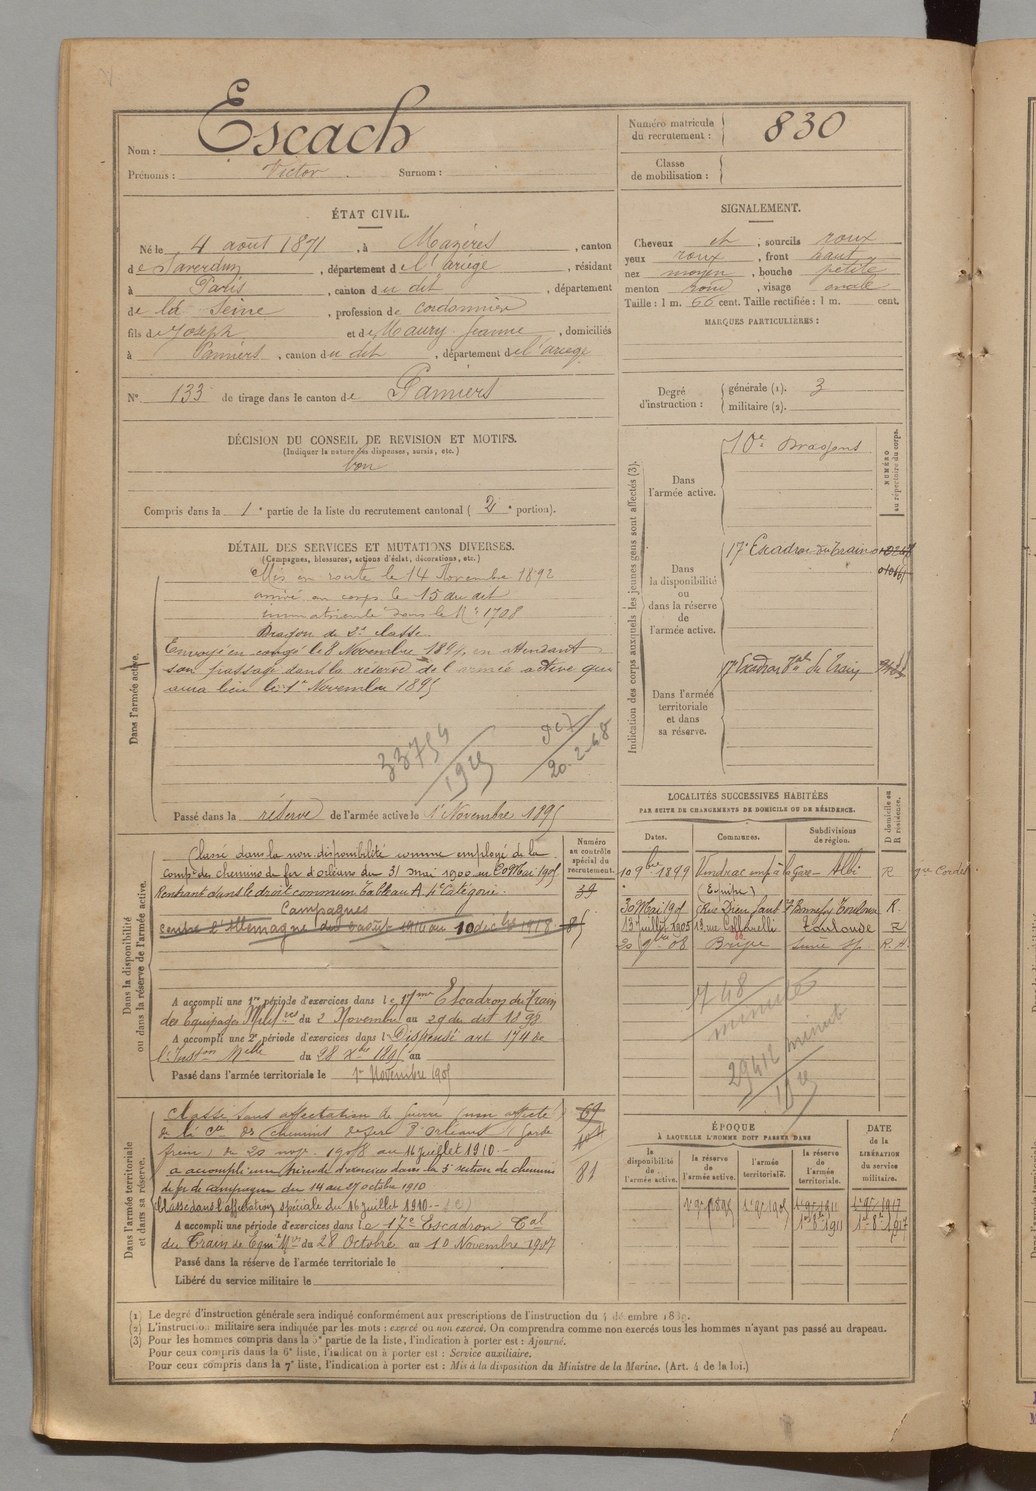 Nom : Escach
Prénoms : Victor . Surnom :
Numéro matricule du recrutement : 830
Classe de mobilisation :
ÉTAT CIVIL.
Né le 4 août 1871, à Mazères, canton
de Saverdun, département de l'ariège, résidant
à Paris, canton du dit, département
de la Seine, profession de cordonnier
fils de Joseph et de Maury Jeanne, domiciliés
à Pamiers, canton du dit, département de l'ariège
N° 133 de tirage dans le canton de Pamiers
SIGNALEMENT.
Cheveux et, sourcils roux
yeux roux, front haut
nez moyen, bouche petite
menton rond, visage ovale
Taille : 1 m. 66 cent. Taille rectifiée : 1 m. cent.
MARQUES PARTICULIÈRES :
Degré d'instruction : générale (1). 3
militaire (2).
DÉCISION DU CONSEIL DE REVISION ET MOTIFS.
(Indiquer la nature des dispenses, sursis, etc.)
bon
Compris dans la 1e partie de la liste du recrutement cantonal ( 2e portion).
DÉTAIL DES SERVICES ET MUTATIONS DIVERSES.
(Campagnes, blessures, actions d'éclat, décorations, etc.)
Dans l'armée active.
Mis en route le 14 Novembre 1892
arrivé au corps le 15 du dit
immatriculé sous le N° 1708
Dragon de 2e classe.
Envoyé en congé le 8 Novembre 1894, en attendant
son passage dans la réserve de l'armée active qui
aura lieu le 1er Novembre 1895
33754
1925
20-2-68
Passé dans la réserve de l'armée active le 1er Novembre 1895
Indication des corps auxquels les jeunes gens sont affectés (3).
NUMÉRO au répertoire du corps.
Dans l'armée active.
10e Dragons
Dans la disponibilité ou dans la réserve de l'armée active.
17e Escadron du Train
Dans l'armée territoriale et dans sa réserve.
17e Escadron Tal du Train
Dans la disponibilité ou dans la réserve de l'armée active.
Numéro au contrôle spécial du recrutement.
Classé dans la non disponibilité comme employé de la
compie des chemins de fer d'orléans du 31 mai 1900 au 20 Mai 1905
Rentrant dans le droit commun Tableau A 4e Catégorie.
39
Campagnes
contre l'Allemagne du 2 août 1914 au 10 déc 1918
85
A accompli une 1re période d'exercices dans le 17me Escadron du Train
des Equipages Militres du 2 Novembre au 29 du dit 1898
A accompli une 2e période d'exercices dans l Dispensé art 174 de
l'Instion Melle du 28 Xbre 1895 au
Passé dans l'armée territoriale le 1er Novembre 1905
LOCALITÉS SUCCESSIVES HABITÉES
PAR SUITE DE CHANGEMENTS DE DOMICILE OU DE RÉSIDENCE.
Dates. Communes. Subdivisions de région. D domicile ou R résidence.
10 9bre 1899 Vindrac emp à la Gare Albi R
30 Mai 1905 Toulouse R.
13 juillet 1905 13 rue Caffarelli Toulouse
20 9bre 08 Seine R.
748
minute
29412 minut
1925
Dans l'armée territoriale et dans sa réserve.
Classé sans affectation de guerre (non affecté
de la Cie des Chemins de fer d'Orléans (Garde
frein) du 20 nov. 1908 au 16 juillet 1910.
69
a accompli une période d'exercices dans la 5e section de chemins
de fer de campagne du 14 au 27 octobre 1910
81
Classé dans l'affectation spéciale du 16 juillet 1910
A accompli une période d'exercices dans le 17e Escadron Tal
du Train du 28 Octobre au 10 Novembre 1907
Passé dans la réserve de l'armée territoriale le
Libéré du service militaire le
ÉPOQUE
À LAQUELLE L'HOMME DOIT PASSER DANS
la disponibilité de l'armée active. la réserve de l'armée active. l'armée territoriale. la réserve de l'armée territoriale.
DATE de la LIBÉRATION du service militaire.
1er 9bre 1895 1er 9bre 1905 1er 9bre 1911 1er 9bre 1917
1er 8bre 1911 1er 8bre 1917
(1) Le degré d'instruction générale sera indiqué conformément aux prescriptions de l'instruction du
(2) L'instruction militaire sera indiquée par les mots : exercé ou non exercé. On comprendra comme non exercés tous les hommes n'ayant pas passé au drapeau.
(3) Pour les hommes compris dans la 5e partie de la liste, l'indication à porter est : Ajourné.
Pour ceux compris dans la 6e liste, l'indication à porter est : Service auxiliaire.
Pour ceux compris dans la 7e liste, l'indication à porter est : Mis à la disposition du Ministre de la Marine. (Art. 4 de la loi.)